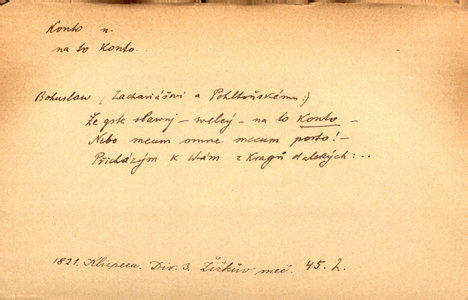 Konto n.
na to Konto.
Bohuslaw (Zachariášowi a Pohltoušskému:)
Že gste slawný – welcý – na to Konto –
Nebo mecum omne mecum porto! –
Pricházým k Wám z Kragů dalekých: ..
1821. Klicpera. Div. 3. Žižkův meč. 45. L.